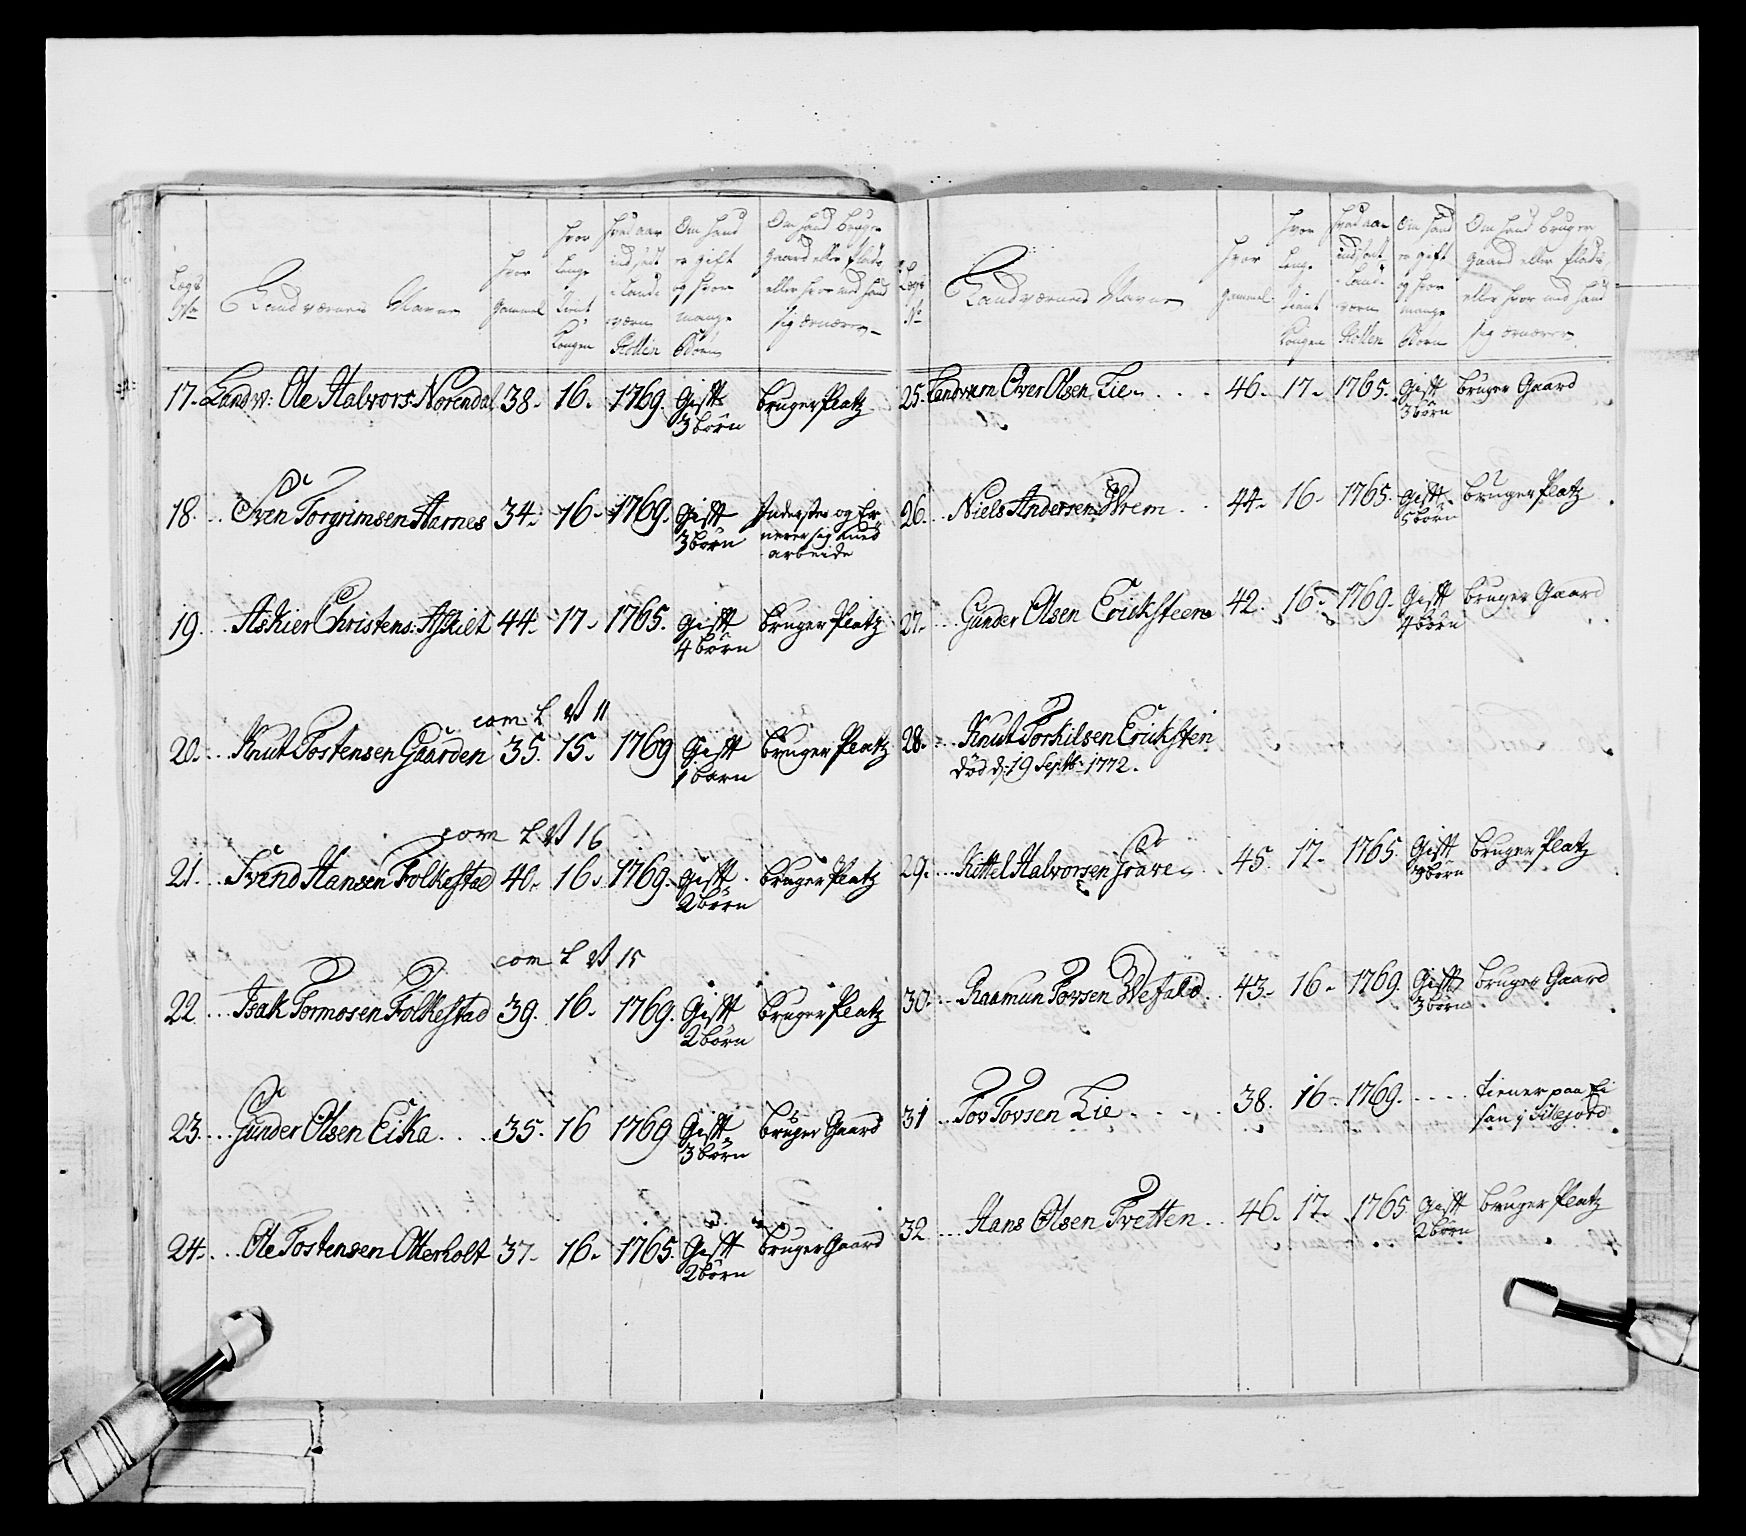 Lægs No
Landværnes Navne
hvor gammel
hvor længe tient Kongen
hvad aar indsadt i Landværn Rollen
Om hand er gift og hvor mange Børn
Om hand bruger Gaard eller Plads eller hvor med hand sig ernærer
17. Landv: Ole Halvors: Norendal 38. 16. 1769. Gift bruger Platz
3 børn
18. Sven Torgrimsen Aarnes 34. 16. 1769. Gift Inderster og Er
3 børn nerer sig med
arbeide
19. Askier Christens: Askilt 44. 17. 1765. Gift bruger Platz
4 børn
com L W 11
20. Knut Tostensen Gaarden 35. 15. 1769 Gift bruger Platz
1 barn
com L W 16
21. Svend Hansen Folkestad 40. 16. 1769. Gift bruger Platz
2 børn
com L W 15
22. Isak Tormosen Folkestad 39. 16. 1769. Gift bruger Platz
2 børn
23. Gunder Olsen Eika 35. 16 1769 Gift bruger Gaard
3 børn
24. Ole Tostensen Otterholt 37. 16. 1765. Gift bruger Gaard
2 børn
Lægs No
Landværnes Navne
hvor gammel
hvor længe tient Kongen
hvad aar indsat i Landværn Rollen
Om hand er gift og hvor mange Børn
Om hand bruger Gaard eller Plads eller hvor med hand sig ernærer
25. Landværn Over Olsen Lie 46. 17. 1765. Gift bruger Gaard
3 børn
26. Niels Andersen 44. 16. 1765. Gift bruger Platz
5 børn
27. Gunder Olsen Ericksteen 42. 16. 1769. Gift bruger Gaard
4 børn
28. Knut Torkilsen Ericksten
død d: 19 Septb: 1772.
29. Kittel Halvorsen Grave 45. 17. 1765. Gift bruger Platz
3 børn
30. Raamun Tovsen 43. 16. 1769. Gift bruger Gaard
3 børn
31 Tov Tovsen Lie 38. 16. 1769. tiener paa Ei
san i Sillejord
32 Hans Olsen Tvetten 46. 17. 1765. Gift bruger Platz
2 børn